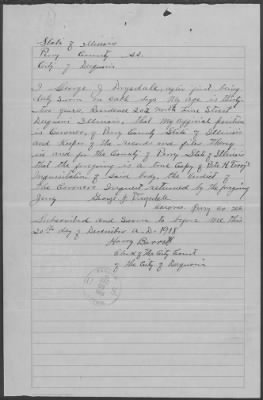 State of Illinois
Perry County SS.
City of Duquoin
I George J. Drysdale, after first being
duly sworn on oath says My age is thirty-
two years. Residence 202 North Line Street
Duquoin Illinois, That My official position
is Coroner, of Perry County State of Illinois
and Keeper of the records and files therein
in and for the County of Perry State of Illinois
that the foregoing is a true Copy of
Inquisitation of said body, the Verdict of
The Coroners Inquest returned by the foregoing
Jury George J. Drysdale
Coroner Perry Co Ill
Subscribed and Sworn to before me this
20th day of December A.D. 1918
Harry Burnett
Clerk of the City Court
of the City of Duquoin